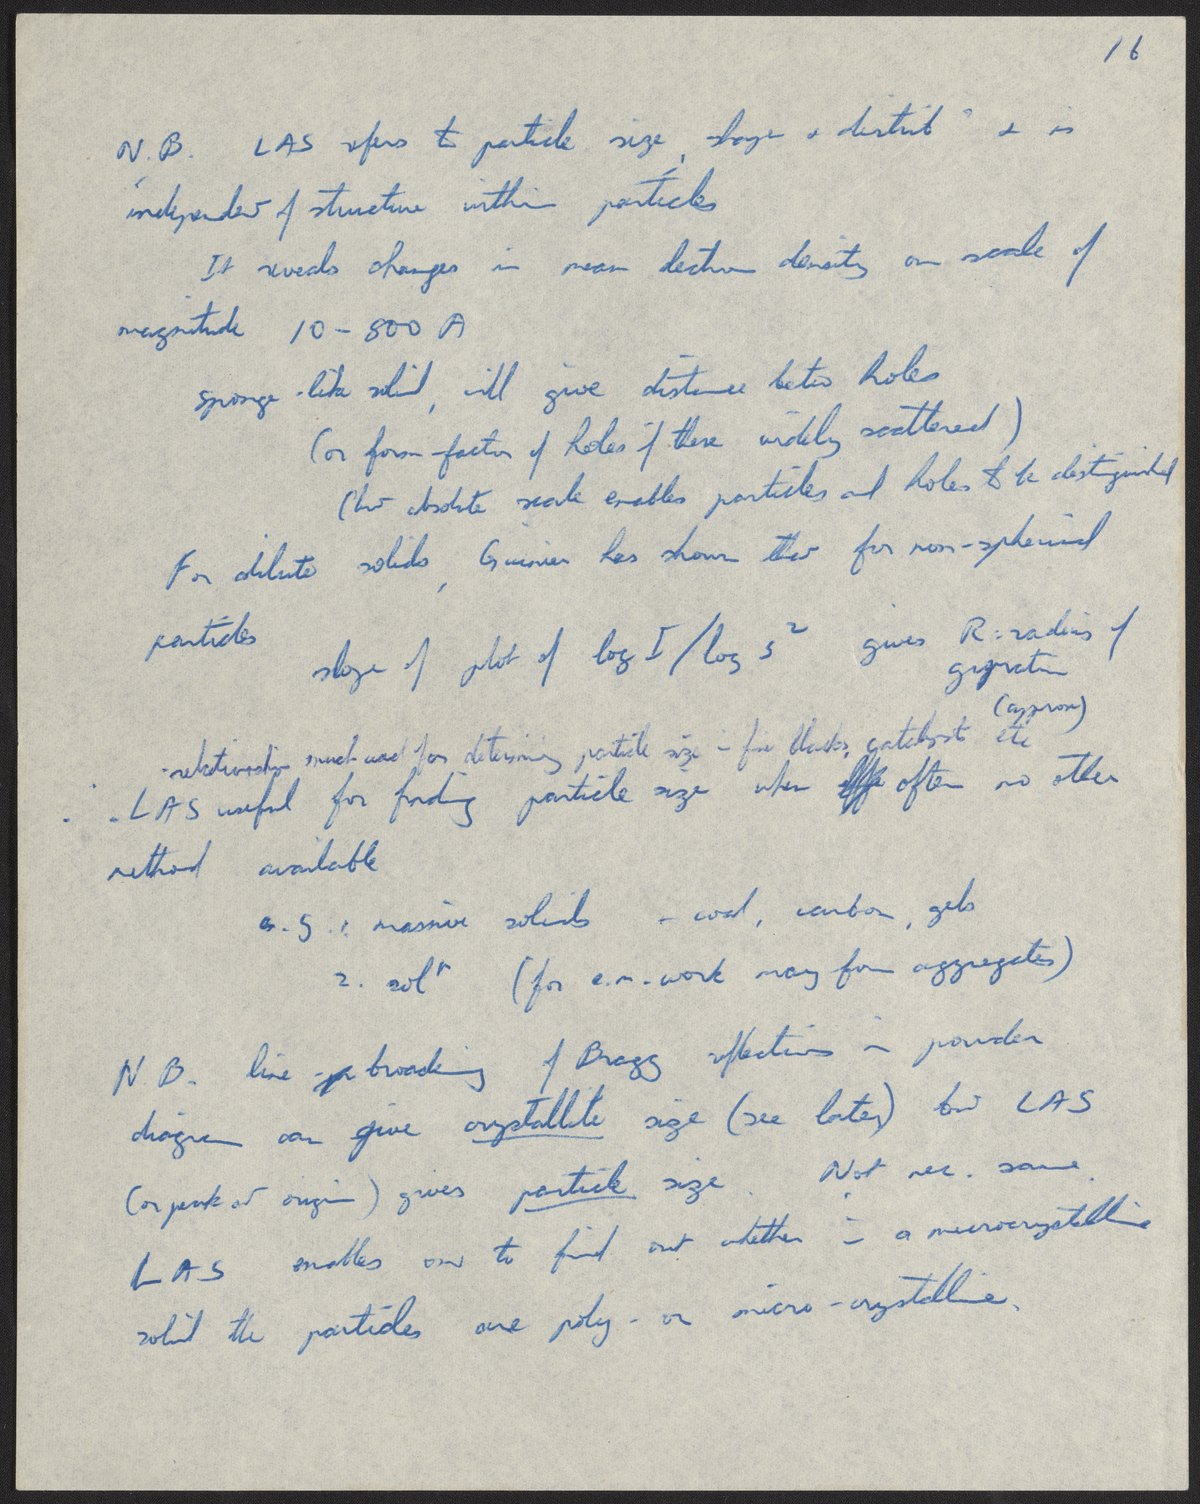 16
N.B. LAS refers to particle size, shape + distribⁿ + is
independent of structure within particles
It reveals changes in mean electron density on scale of
magnitude 10 - 800 A
sponge-like solid, will give distance betw holes
(or form-factor of holes if these widely scattered)
(but absolute scale enables particles and holes to be distinguished
For dilute solids, Guinier has shown that for non-spherical
particles
slope of plot of log I / log s² gives R = radius of
gyration
(approx)
- relationship much used for determining particle size in fine blacks, catalysts etc
∴ LAS useful for finding particle size when often no other
method available
e.g. 1. massive solids - coal, carbon, gels
2. solⁿ (for e.m. work may form aggregates)
N.B. line broadening of Bragg reflections in powder
diagram can give crystallite size (see later) but LAS
(or peak at origin) gives particle size. Not nec. same.
LAS enables one to find out whether in a microcrystalline
solid the particles are poly- or micro-crystalline.